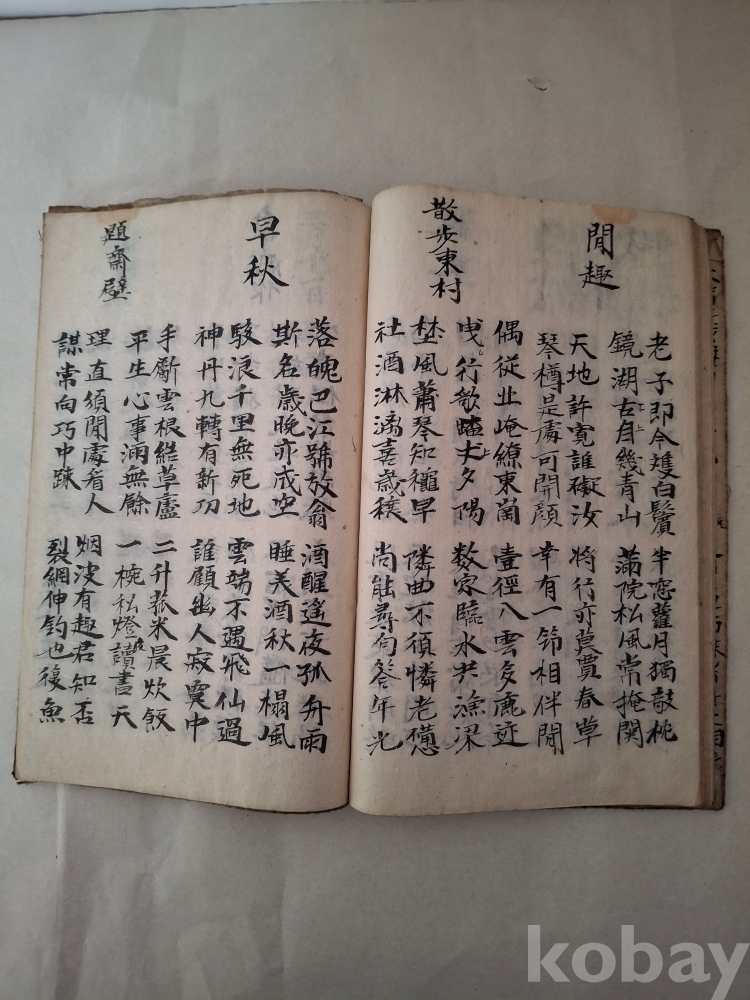 閒趣
老子即今雙白鬢 半窓蘿月獨敲桃
鏡湖古自幾青山 滿院松風常掩関
天地許寬誰礙汝 将行亦莫賈春草
琴樽是處可開顔 幸有一節相伴閒
散步東村
偶從北崦繚東菌 壹徑入雲多鹿迹
曳行欹 夕陽 数家臨水共漁梁
埜風蕭琴知 早 隣曲不須憐老憊
社酒淋漓喜歲穰 尚能尋句答年光
早秋
落魄巴江號放翁 酒醒遙夜孤舟雨
斯名歲晚亦成空 睡美酒秋一榻風
駭浪千里無死地 雲端不遇飛仙過
神丹九轉有新功 誰顧幽人寂寞中
題齋壁
手斸雲根結草廬 二升菰米晨炊飯
平生心事滿無餘 一椀松燈夜讀書天
理直須閒處看人 烟波有趣君知否
謀常向巧中踈 裂網伸鈎也復魚
kobay